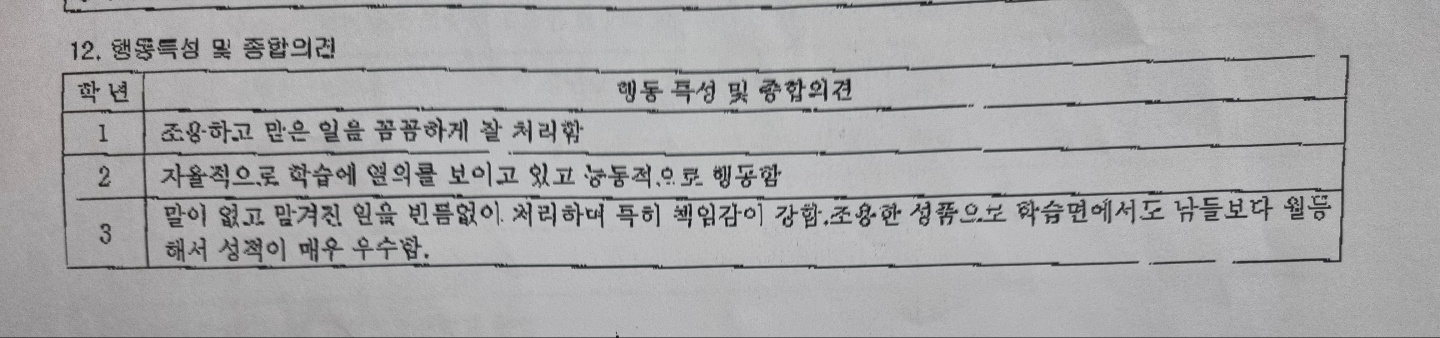 12. 행동특성 및 종합의견
학 년 행동 특성 및 종합의견
1 조용하고 맡은 일을 꼼꼼하게 잘 처리함
2 자율적으로 학습에 열의를 보이고 있고 능동적으로 행동함
3 말이 없고 맡겨진 일을 빈틈없이 처리하며 특히 책임감이 강함.조용한 성품으로 학습면에서도 남들보다 월등
해서 성적이 매우 우수함.